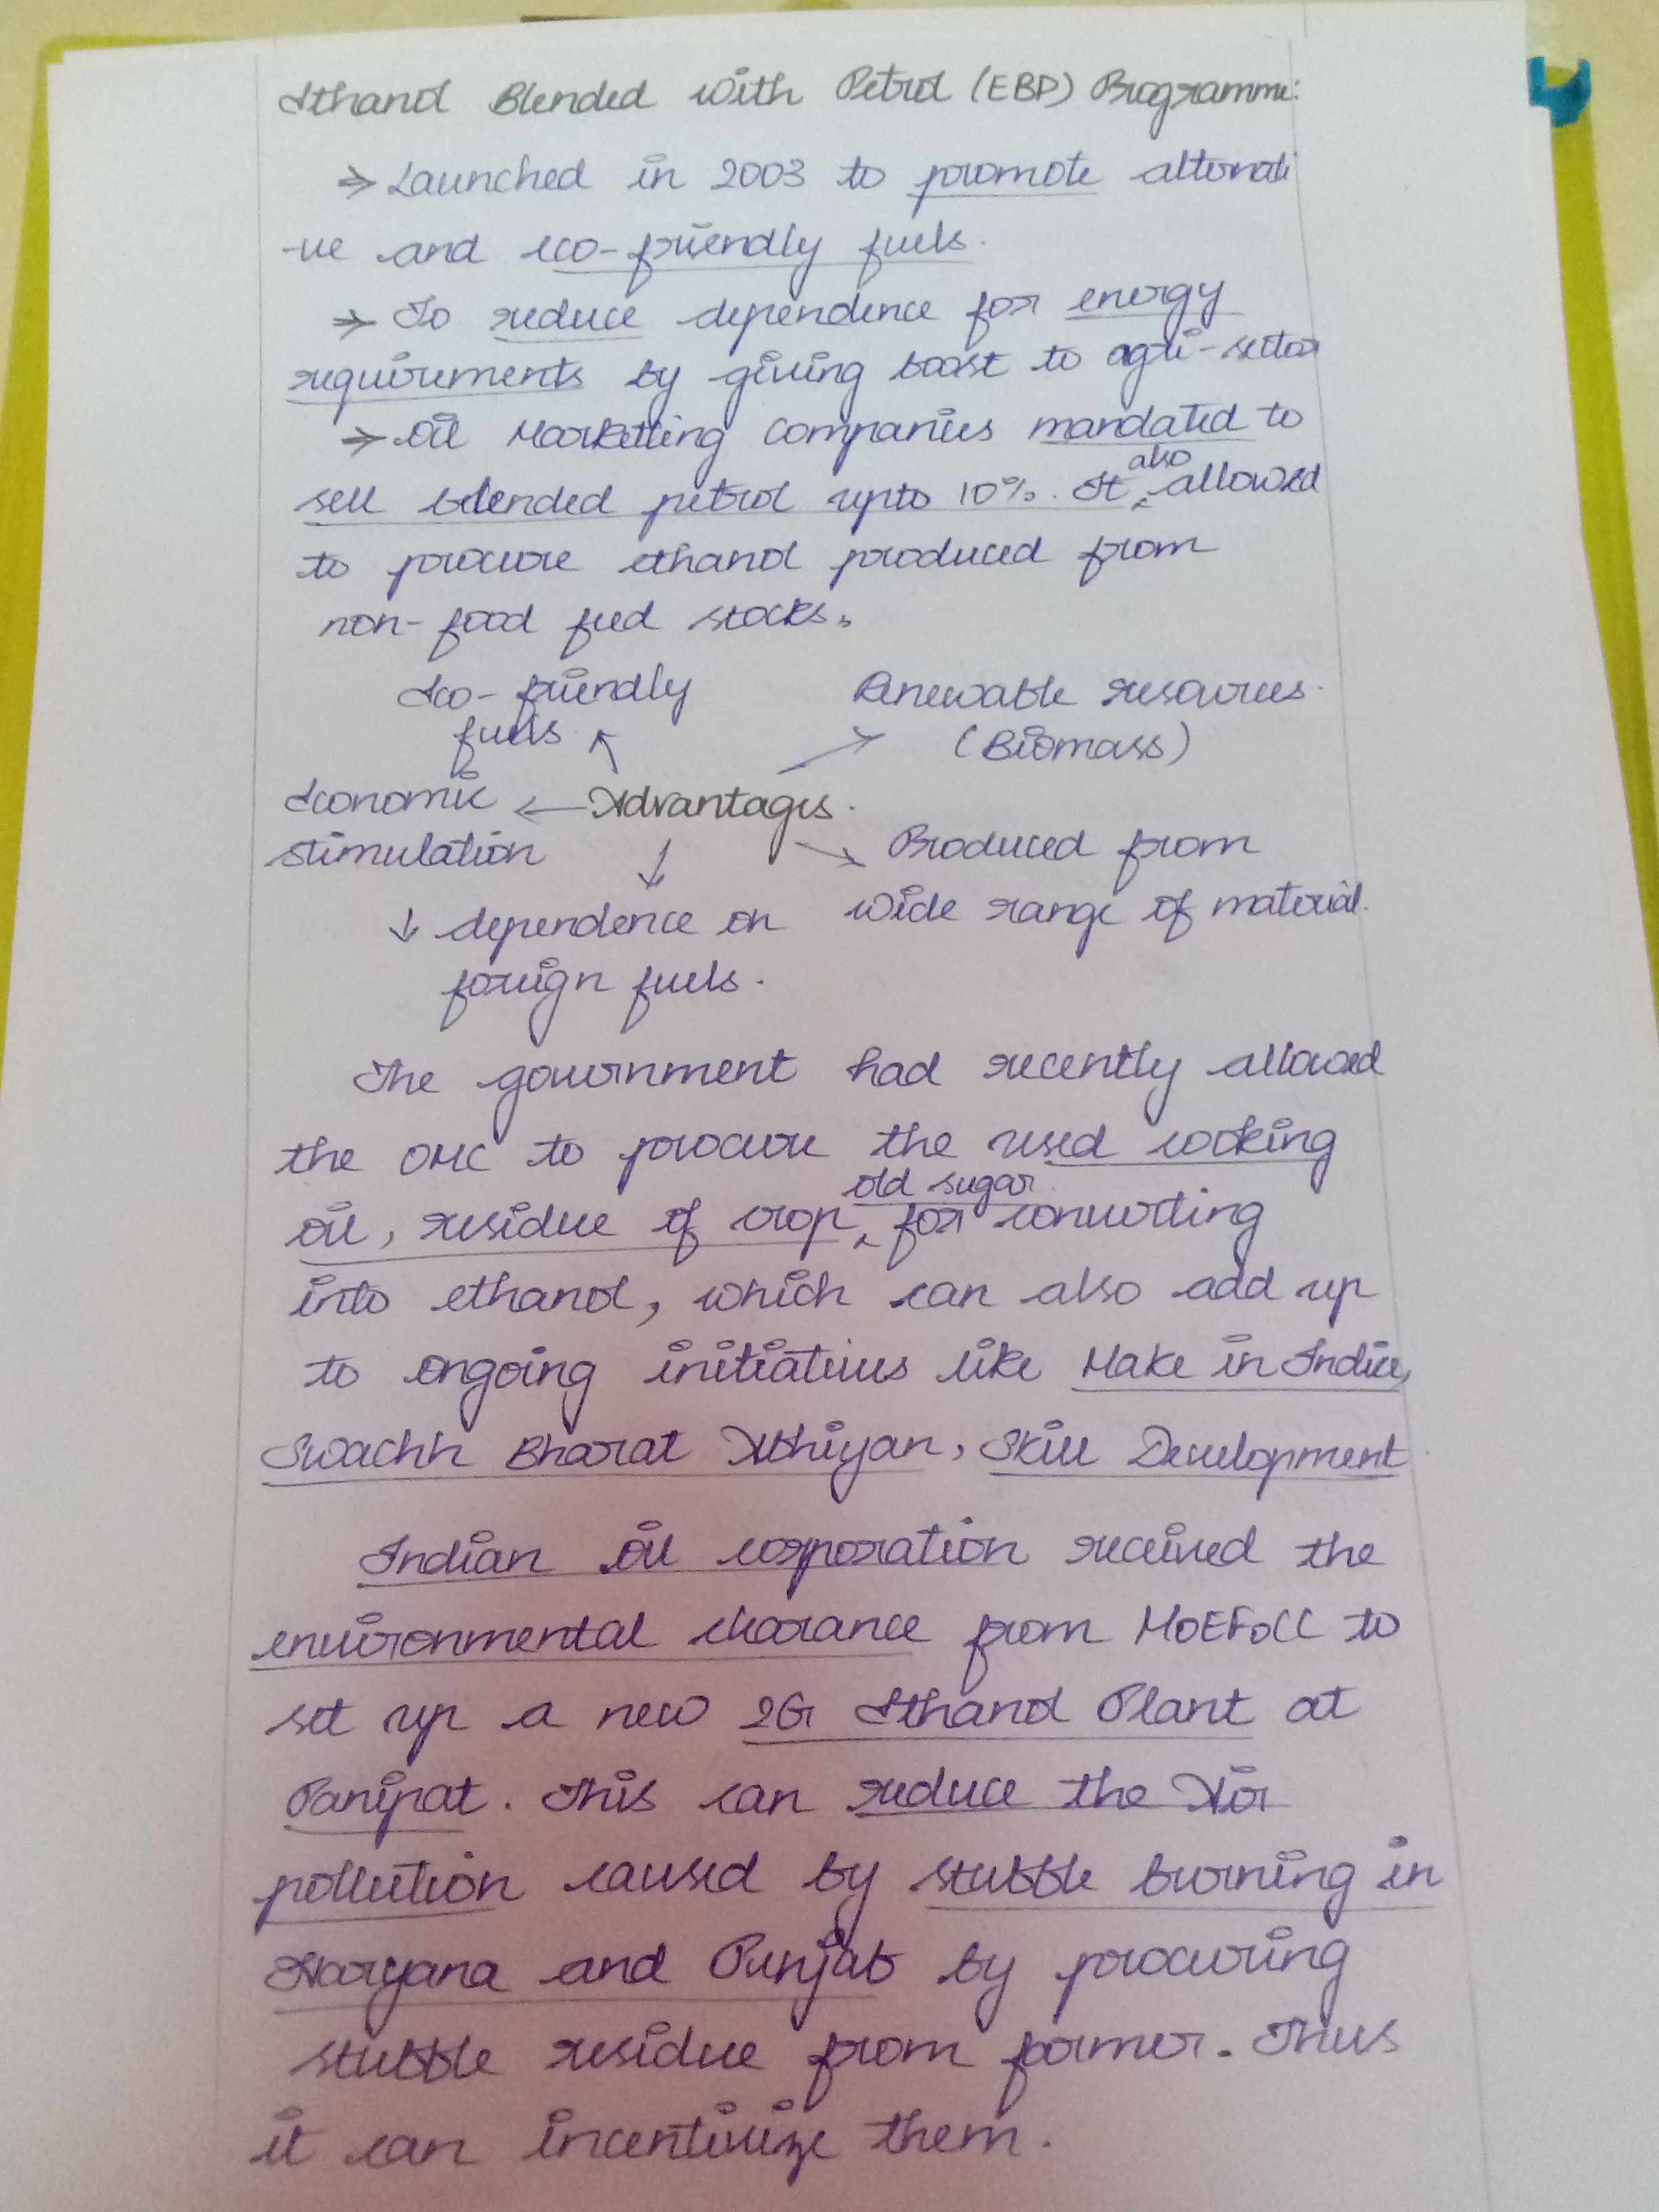 Ethanol Blended with Petrol (EBP) Programme:
⇒ Launched in 2003 to promote alternati
-ve and eco-friendly fuels.
⇒ To reduce dependence for energy
requirements by giving boost to agri-sector
⇒ Oil Marketting companies mandated to
sell blended petrol upto 10%. It also allowed
to procure ethanol produced from
non-food feed stocks.
Eco-friendly fuels
Renewable resources.
(Biomass)
Economic ← Advantages.
stimulation
Produced from
wide range of material.
↓ dependence on
foreign fuels.
The government had recently allowed
the OMC to procure the used cooking
oil, residue of crop, old sugar for converting
into ethanol, which can also add up
to ongoing initiatives like Make in India,
Swachh Bharat Abhiyan, Skill Development
Indian oil corporation received the
environmental clearance from MoEFoCC to
set up a new 2G Ethanol Plant at
Panipat. This can reduce the Air
pollution caused by stubble burning in
Haryana and Punjab by procuring
stubble residue from former. Thus
it can incentivize them.